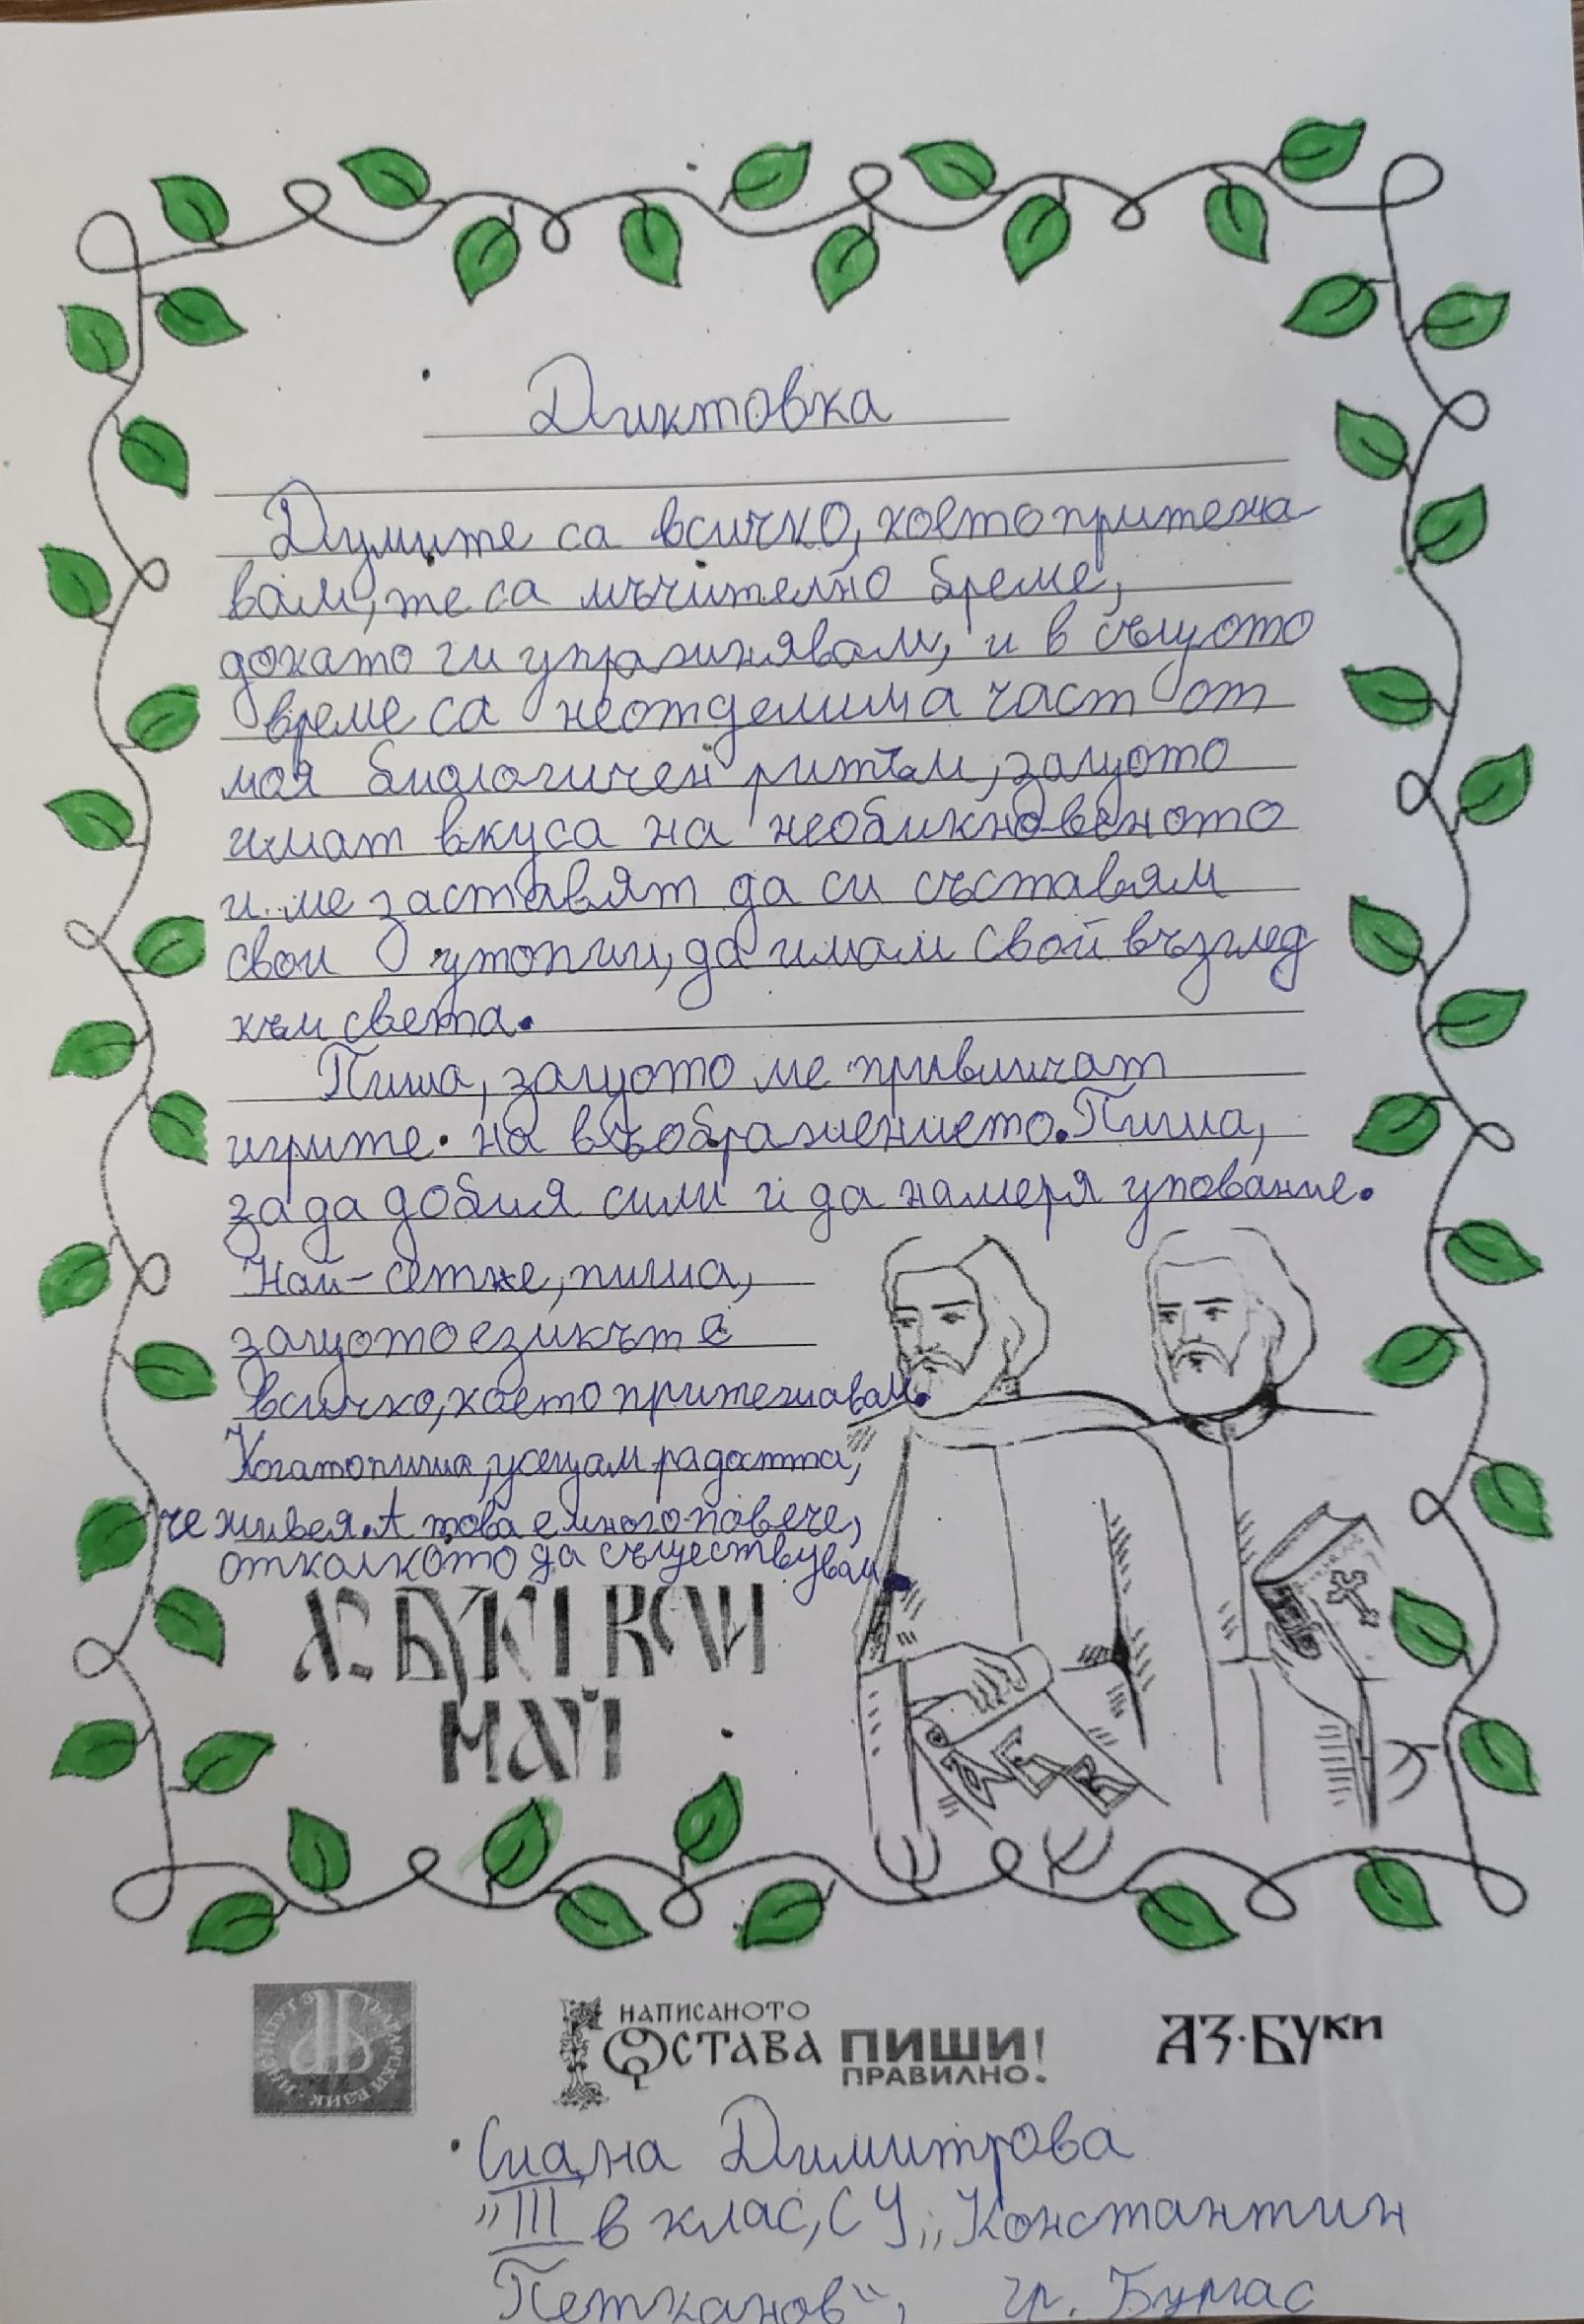 Диктовка
Думите са всичко, което притежа-
вам, те са мъчително бреме,
докато ги упражнявам, и в същото
време са неотделима част от
моя биологичен ритъм, защото
имат вкуса на необикновеното
и ме заставят да си съставям
свои утопии, да имам свой възглед
към света.
Пиша, защото ме привличат
игрите на въображението. Пиша,
за да добия сили и да намеря упование.
Най-сетне, пиша,
защото езикът е
всичко, което притежавам.
Когато пиша, усещам радостта,
че живея. А това е много повече,
отколкото да съществувам.
АЗ БУКИ ВЕДИ
МАЙ
АБВ
ИНСТИТУТ ЗА БЪЛГАРСКИ ЕЗИК
НАПИСАНОТО
ОСТАВА ПИШИ!
ПРАВИЛНО.
АЗ·БУКИ
Сиана Димитрова
"III в клас, СУ „Константин
Петканов", гр. Бургас